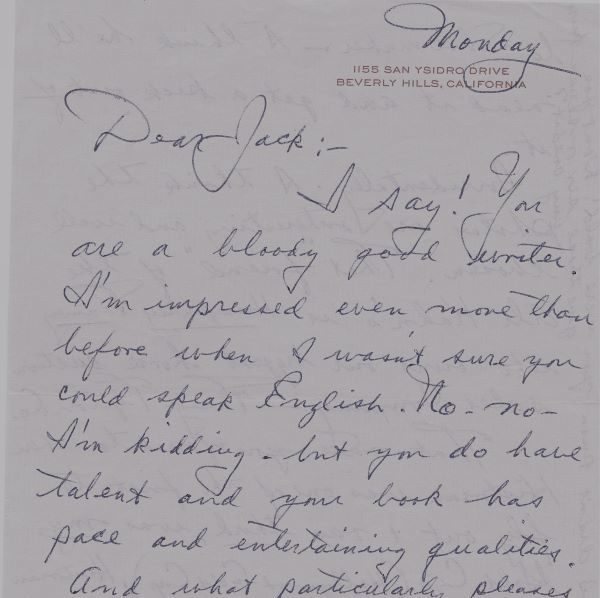 Monday
1155 SAN YSIDRO DRIVE
BEVERLY HILLS, CALIFORNIA
Dear Jack:-
I say! You
are a bloody good writer.
I'm impressed even more than
before when I wasn't sure you
could speak English. No-no-
I'm kidding - but you do have
talent and your book has
pace and entertaining qualities.
And what particularly pleases